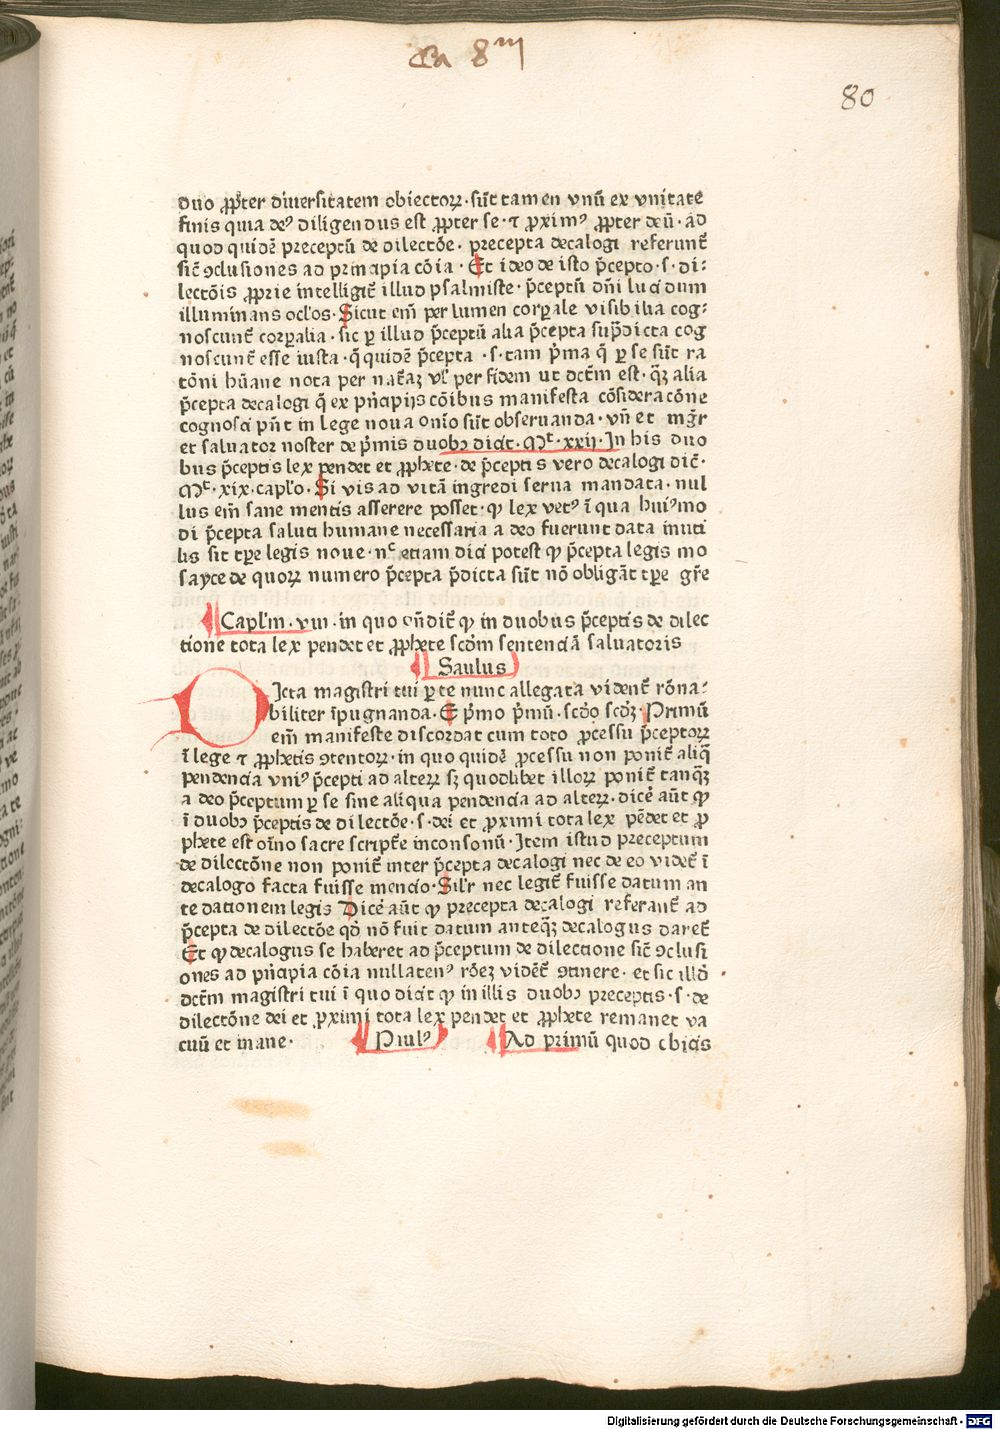 Ca 8m
80
duo ꝓpter diuersitatem obiectoꝝ · sūt tamen vnū ex vnitate
finis quia deꝰ diligendus est ꝓpter se · ⁊ ꝓximꝰ ꝓpter deū · ad
quod quidē preceptū de dilectōe · precepta decalogi referunt̄
sic̄ ꝯclusiones ad principia cōia · Et ideo de isto p̄cepto · s · di:
lectōis ꝓprie intelligit̄ illud psalmiste · p̄ceptū dn̄i lucidum
illuminans ocl'os · Sicut em̄ per lumen corꝑale visibilia cog:
noscunt̄ corꝑalia · sic ꝑ illud p̄ceptū alia p̄cepta sup̄dicta cog
noscunt̄ esse iusta · q̄ quidē p̄cepta · s · tam p̄ma q̄ ꝑ se sūt ra
tōni hūane nota per nat̄aꝫ vl' per fidem ut dct̄m est · qꝫ alia
p̄cepta decalogi q̄ ex pn̄cipijs cōibus manifesta cōsideracōne
cognosci pn̄t in lege noua om̄io sūt obseruanda · vn̄ et mḡr
et saluator noster de p̄mis duobꝫ dicit · Mt · xxij · In his duo
bus p̄ceptis lex pendet et ꝓphete · de p̄ceptis vero decalogi dic̄ ·
Mt · xix · capl'o · Si vis ad vitā ingredi serua mandata · nul
lus em̄ sane mentis asserere posset · ꝙ lex vetꝰ ī qua huiꝰmo
di p̄cepta saluti humane necessaria a deo fuerunt data inuti
lis sit tꝑe legis noue · nc̄ etiam dici potest ꝙ p̄cepta legis mo
sayce de quoꝝ numero p̄cepta p̄dicta sūt nō obligāt tꝑe gr̄e
Capl'm · viii · in quo on̄dit̄ ꝙ in duobus p̄ceptis de dilec
tione tota lex pendet et ꝓphete scd̄m sentenciā saluatoris
Saulus
DIcta magistri tui ꝑ te nunc allegata vident̄ rōna:
biliter īpugnanda · Et p̄mo p̄mū · scd̄o scd̄ꝫ · Primū
em̄ manifeste discordat cum toto ꝓcessu p̄ceptoꝝ
ī lege ⁊ ꝓphetis ꝯtentoꝝ · in quo quidē ꝓcessu non ponit̄ aliq̄
pendencia vniꝰ p̄cepti ad alteꝝ sꝫ quodlibet illoꝝ ponit̄ tanqꝫ
a deo p̄ceptum ꝑ se sine aliqua pendencia ad alteꝝ · dicē aūt ꝙ
ī duobꝫ p̄ceptis de dilectōe · s · dei et ꝓximi tota lex pēdet et ꝓ
phete est oīno sacre scripte inconsonū · Item istud preceptum
de dilectōne non ponit̄ inter p̄cepta decalogi nec de eo videt̄ ī
decalogo facta fuisse mencio · Sil'r nec legit̄ fuisse datum an
te dationem legis Dicē aūt ꝙ precepta decalogi referant̄ ad
p̄cepta de dilectōe qd̄ nō fuit datum anteqꝫ decalogus daret̄
Et ꝙ decalogus se haberet ad p̄ceptum de dilectione sic̄ ꝯclusi
ones ad pn̄cipia cōia nullatenꝰ rōeꝫ vidēt̄ ꝯtinere · et sic illō
dct̄m magistri tui ī quo dicit ꝙ in illis duobꝫ preceptis · s · de
dilectōne dei et ꝓximi tota lex pendet et ꝓphete remanet va
cuū et inane · Paulꝰ Ad primū quod obicis
Digitalisierung gefördert durch die Deutsche Forschungsgemeinschaft - DFG